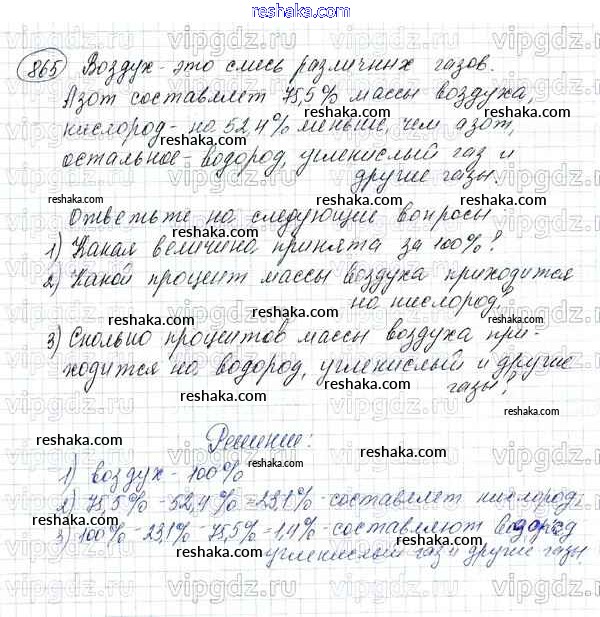 reshaka.com
865 Воздух - это смесь различных газов.
Азот составляет 75,5% массы воздуха,
кислород - на 52,4% меньше, чем азот,
остальное - водород, углекислый газ и
другие газы.
Ответьте на следующие вопросы:
1) Какая величина принята за 100%?
2) Какой процент массы воздуха приходится
на кислород?
3) Сколько процентов массы воздуха при-
ходится на водород, углекислый и другие
газы?
Решение:
1) воздух - 100%
2) 75,5% - 52,4% = 23,1% - составляет кислород;
3) 100% - 23,1% - 75,5% = 1,4% - составляют водород
углекислый газ и другие газы.